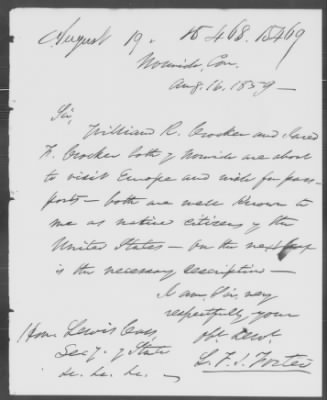 August 19. 15468. 15469
Norwich, Con.
Aug. 16. 1859 —
Sir,
William R. Crocker and
F. Crocker both of Norwich are about
to visit Europe and wish for pass-
ports — both are well known to
me as native citizens of the
United States — On the next
is the necessary description —
I am, Sir, very
respectfully your
obt. Servt.
L. F. S. Foster
Hon. Lewis Cass,
Secy. of State
&c. &c. &c. —